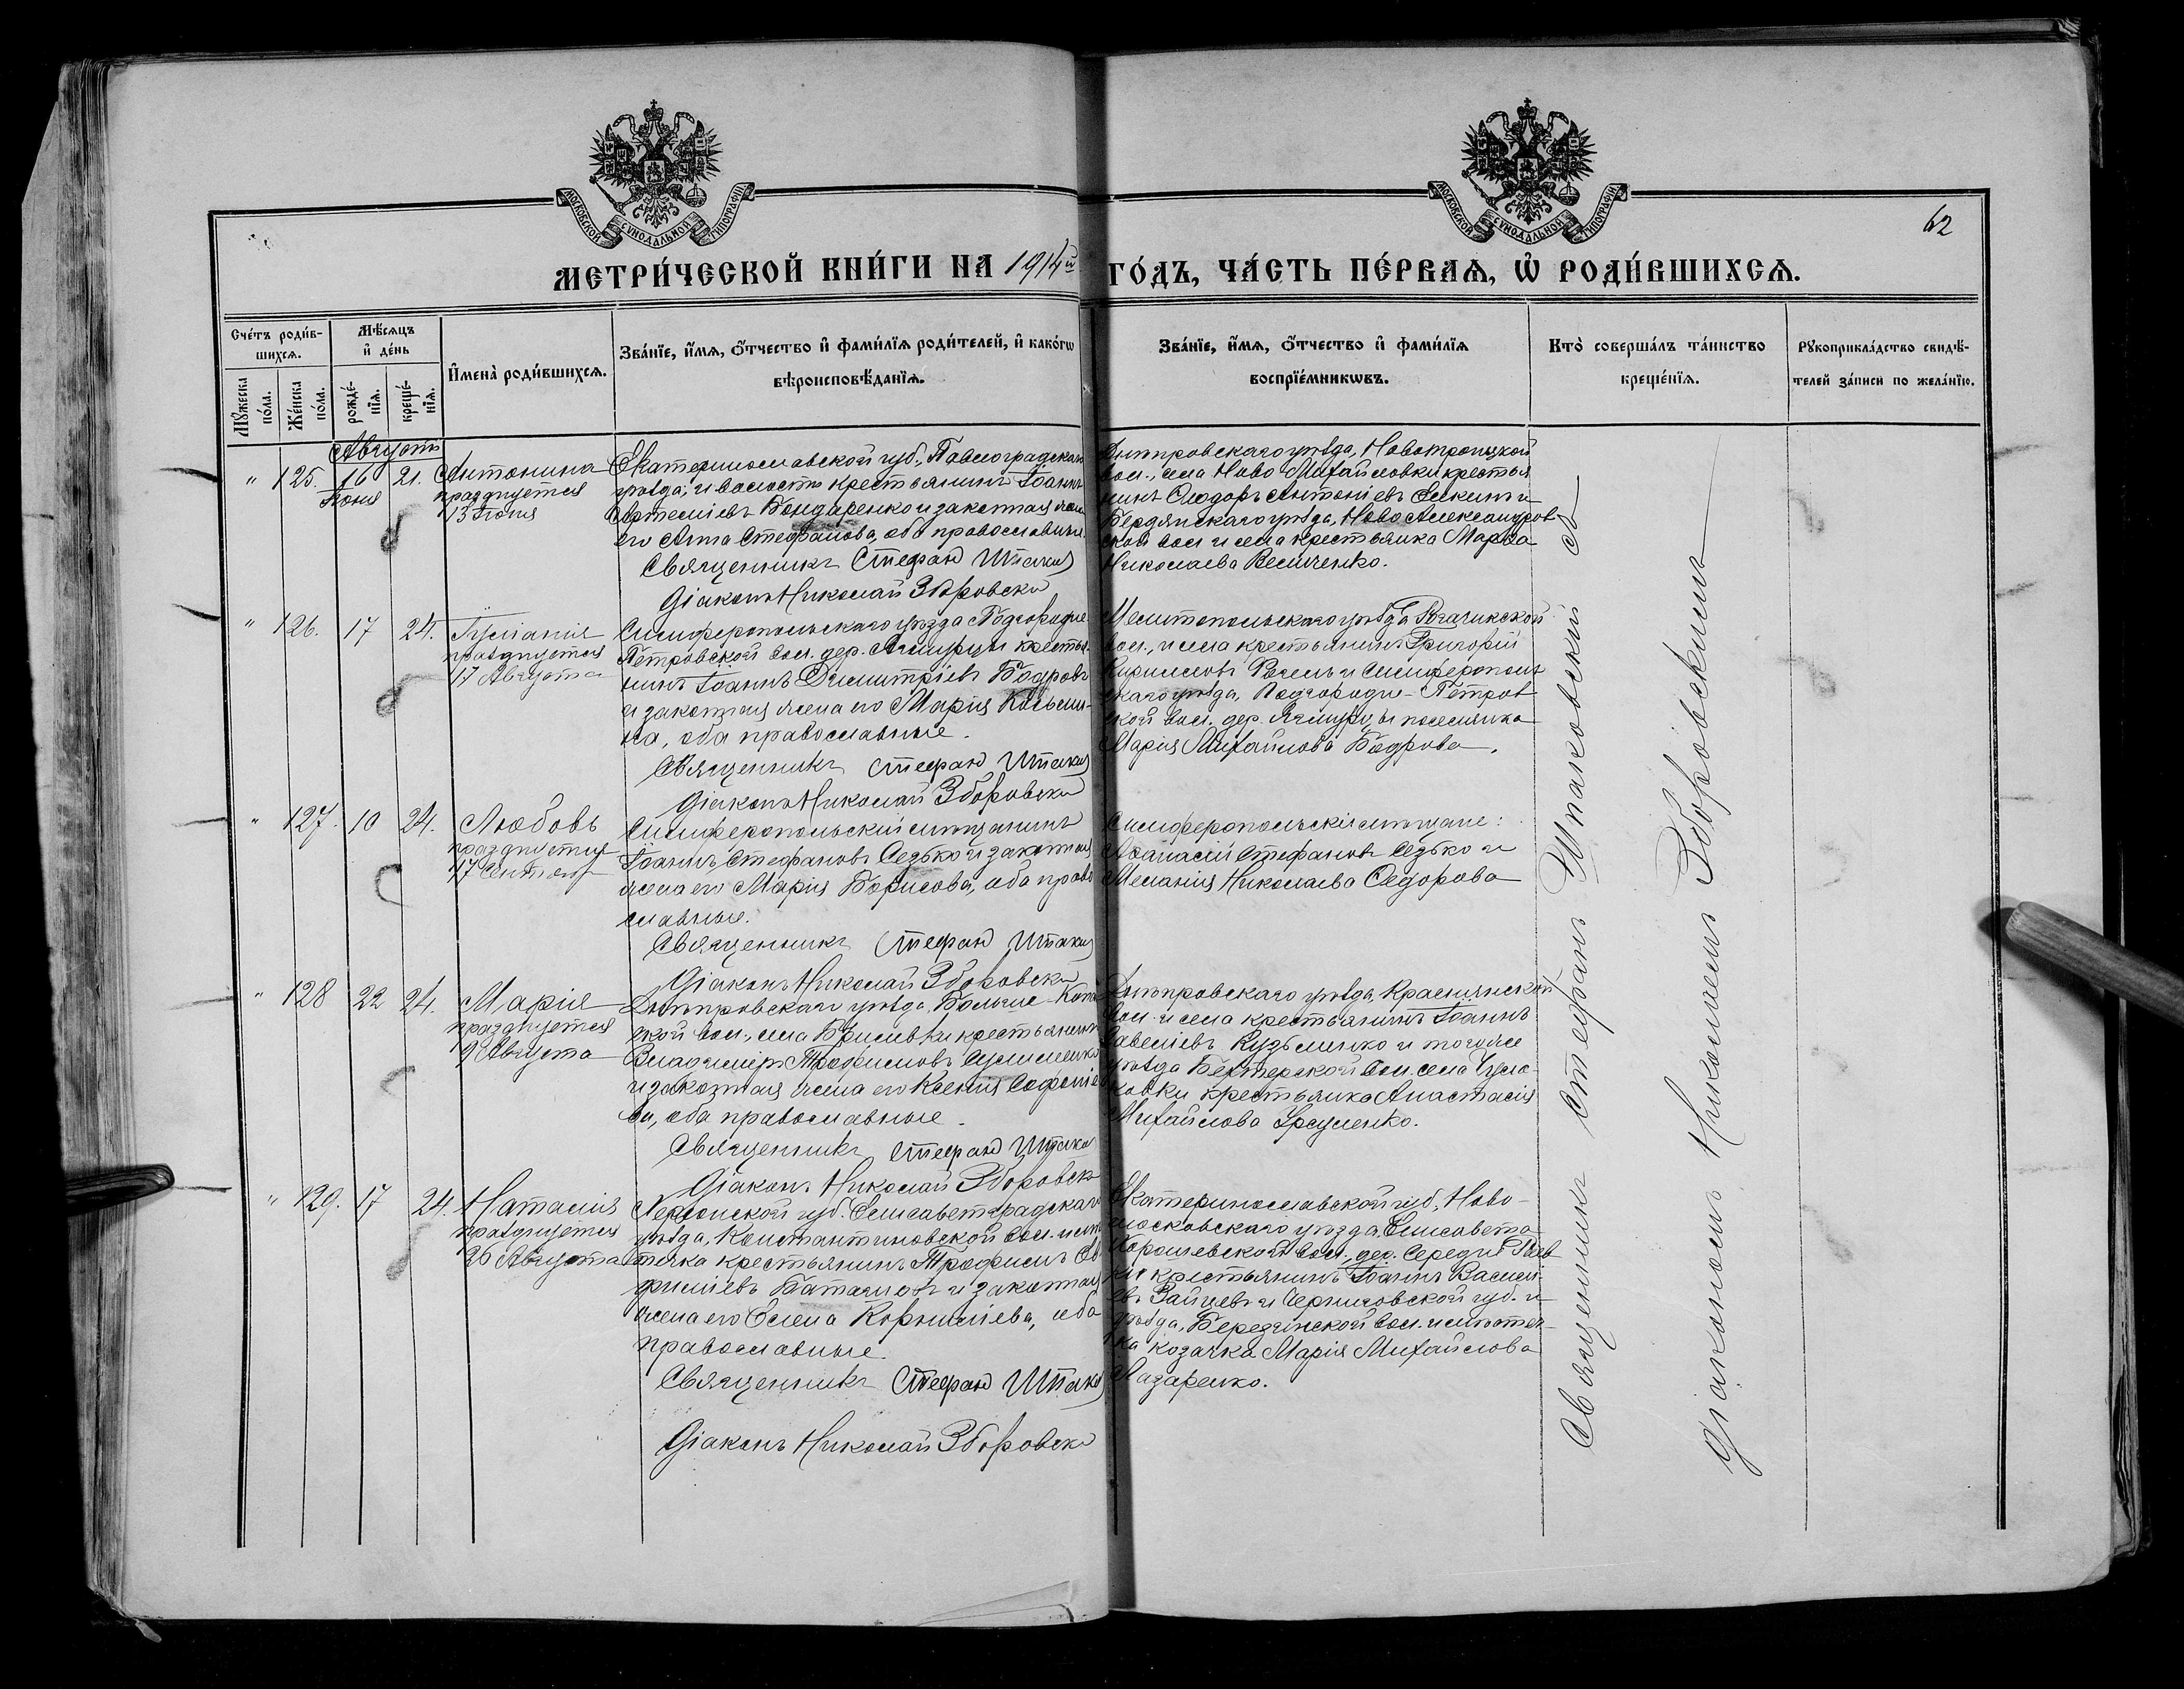 МОСКОВСКОЙ СѴНОДАЛЬНОЙ ТИПОГРАФІИ
МОСКОВСКОЙ СѴНОДАЛЬНОЙ ТИПОГРАФІИ
62
МЕТРИ́ЧЕСКОЙ КНИ́ГИ НА 1914й ГО́ДЪ, ЧА́СТЬ ПЕ́РВАѦ, Ѡ҆ РОДИ́ВШИХСѦ.
Сче́тъ роди́в-
шихсѧ.
Мꙋ́жеска по́ла.
Же́нска по́ла.
Мѣ́сѧцъ и҆ де́нь
рожде́-
нїѧ.
креще́-
нїѧ.
И҆мена̀ роди́вшихсѧ.
Зва́нїе, и҆́мѧ, ѻ҆́тчество и҆ фами́лїѧ роди́телей, и҆ како́гѡ
вѣроисповѣ́данїѧ.
Зва́нїе, и҆́мѧ, ѻ҆́тчество и҆ фами́лїѧ
воспрїе́мникѡвъ.
Кто̀ соверша́лъ та́инство
креще́нїѧ.
Рꙋкоприкла́дство свидѣ́-
телей за́писи по жела́нїю.
Августъ
" 125. 16 21.
Іюня
Антонина
празднуется
13 Іюня
Екатеринославской губ., Павлоградскаго
уѣзда, и волости крестьянинъ Іоаннъ
Артеміевъ Бондаренко и законная жена
его Анна Стефанова, оба православные.
Священникъ Стефанъ
Діаконъ Николай Зборовскій
Днѣпровскаго уѣзда, Новотроицкой
вол., села Ново Михайловки крестья
нинъ Ѳеодоръ Антоніевъ и
Бердянскаго уѣзда, Ново Александров-
ской вол. и села крестьянка Марѳа
Николаева Величенко.
" 126. 17 24.
празднуется
17 Августа
Симферопольскаго уѣзда Подгородне-
Петровской вол. дер. крестья-
нинъ Іоаннъ Димитріевъ Бодровъ
и законная жена его Марія Косьми-
на, оба православные.
Священникъ Стефанъ
Діаконъ Николай Зборовскій
Мелитопольскаго уѣзда Рогачикской
вол., и села крестьянинъ Григорій
Кирилловъ и Симферополь
скаго уѣзда, Подгородне-Петров
ской вол. дер. поселянка
Марія Михайлова Бодрова.
" 127. 10 24.
Любовь
празднуется
17 Сентября
Симферопольскій мѣщанинъ
Іоаннъ Стефановъ Седько и законная
жена его Марія Борисова, оба право
славные.
Священникъ Стефанъ
Діаконъ Николай Зборовскій
Симферопольскіе мѣщане:
Аѳанасій Стефановъ Седько и
Меланія Николаева Ѳедорова
" 128 22 24.
Марія
празднуется
9 Августа
Днѣпровскаго уѣзда, Больше-
ской вол., села Бриловки крестьянинъ
Владиміръ Трофимовъ
и законная жена его Ксенія Софоніе
ва, оба православные.
Священникъ Стефанъ
Діаконъ Николай Зборовскій
Днѣпровскаго уѣзда, Краснянской
вол. и села крестьянинъ Іоаннъ
Савеліевъ Кузьменко и того же
уѣзда Бехтерской вол. села Чула-
ковки крестьянка Анастасія
Михайлова
" 129. 17 24.
Наталія
празднуется
26 Августа
Херсонской губ. Елисаветградскаго
уѣзда, Константиновской вол. и
течка крестьянинъ Трофимъ
и законная
жена его Елена Корниліева, оба
православные.
Священникъ Стефанъ
Діаконъ Николай Зборовскій
Екатеринославской губ., Ново-
московскаго уѣзда, Елисавето-
Хорошевской вол., дер.
крестьянинъ Іоаннъ Василі-
евъ Зайцевъ и Черниговской губ. и
уѣзда, Березинской вол. и мѣстеч-
ка козачка Марія Михайлова
Лазаренко.
Священникъ Стефанъ Шпаковскій съ
діакономъ Николаемъ Зборовскимъ